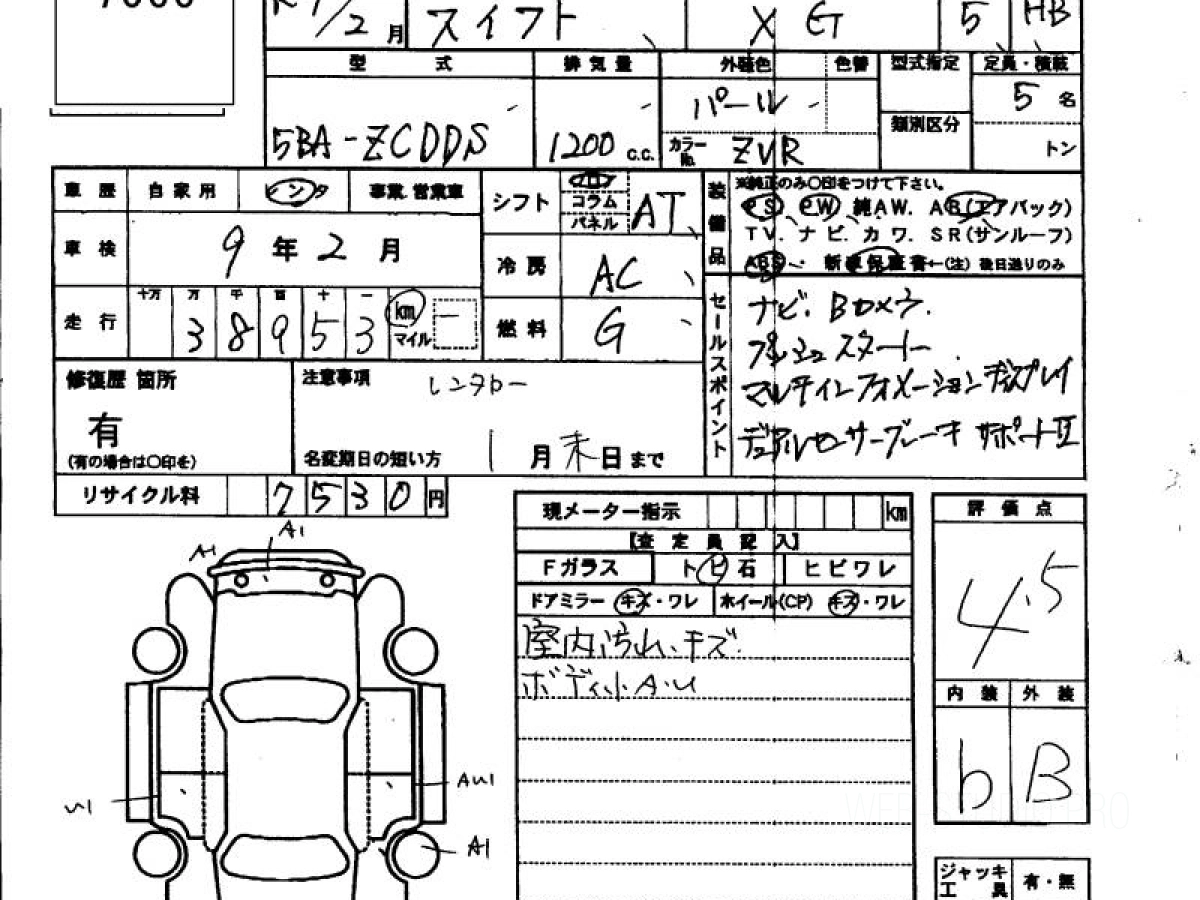 /2 月 スイフト X G 5 HB
型 式 排気量 外装色 色替 型式指定 定員・積載
5BA-ZCDDS 1200 c.c. パール 5 名
カラーNo. ZVR 類別区分 トン
車歴 自家用 レンタ 事業.営業車
車検 9 年 2 月
走行 十万 万 千 百 十 一
3 8 9 5 3 km マイル
シフト フロ コラム パネル AT
冷房 AC
燃料 G
装備品 ※純正のみ○印をつけて下さい。
PS PW 純AW. AB(エアバック)
TV. ナビ. カワ. SR(サンルーフ)
ABS 新車保証書←(注) 後日送りのみ
セールスポイント
ナビ. Bカメラ.
プッシュスタート
マルチインフォメーションディスプレイ
デュアルセンサーブレーキサポートII
修復歴 箇所
有
(有の場合は○印を)
注意事項 レンタカー
名変期日の短い方 1 月 末 日 まで
リサイクル料 7 5 3 0 円
現メーター指示 km
【査定員記入】
Fガラス トビ石 ヒビワレ
ドアミラー キズ・ワレ ホイール(CP) キズ・ワレ
室内汚れ、キズ
ボディ小A.U
評価点
4.5
内装 外装
b B
ジャッキ 有・無
工具
A1
A1
U1
AU1
A1